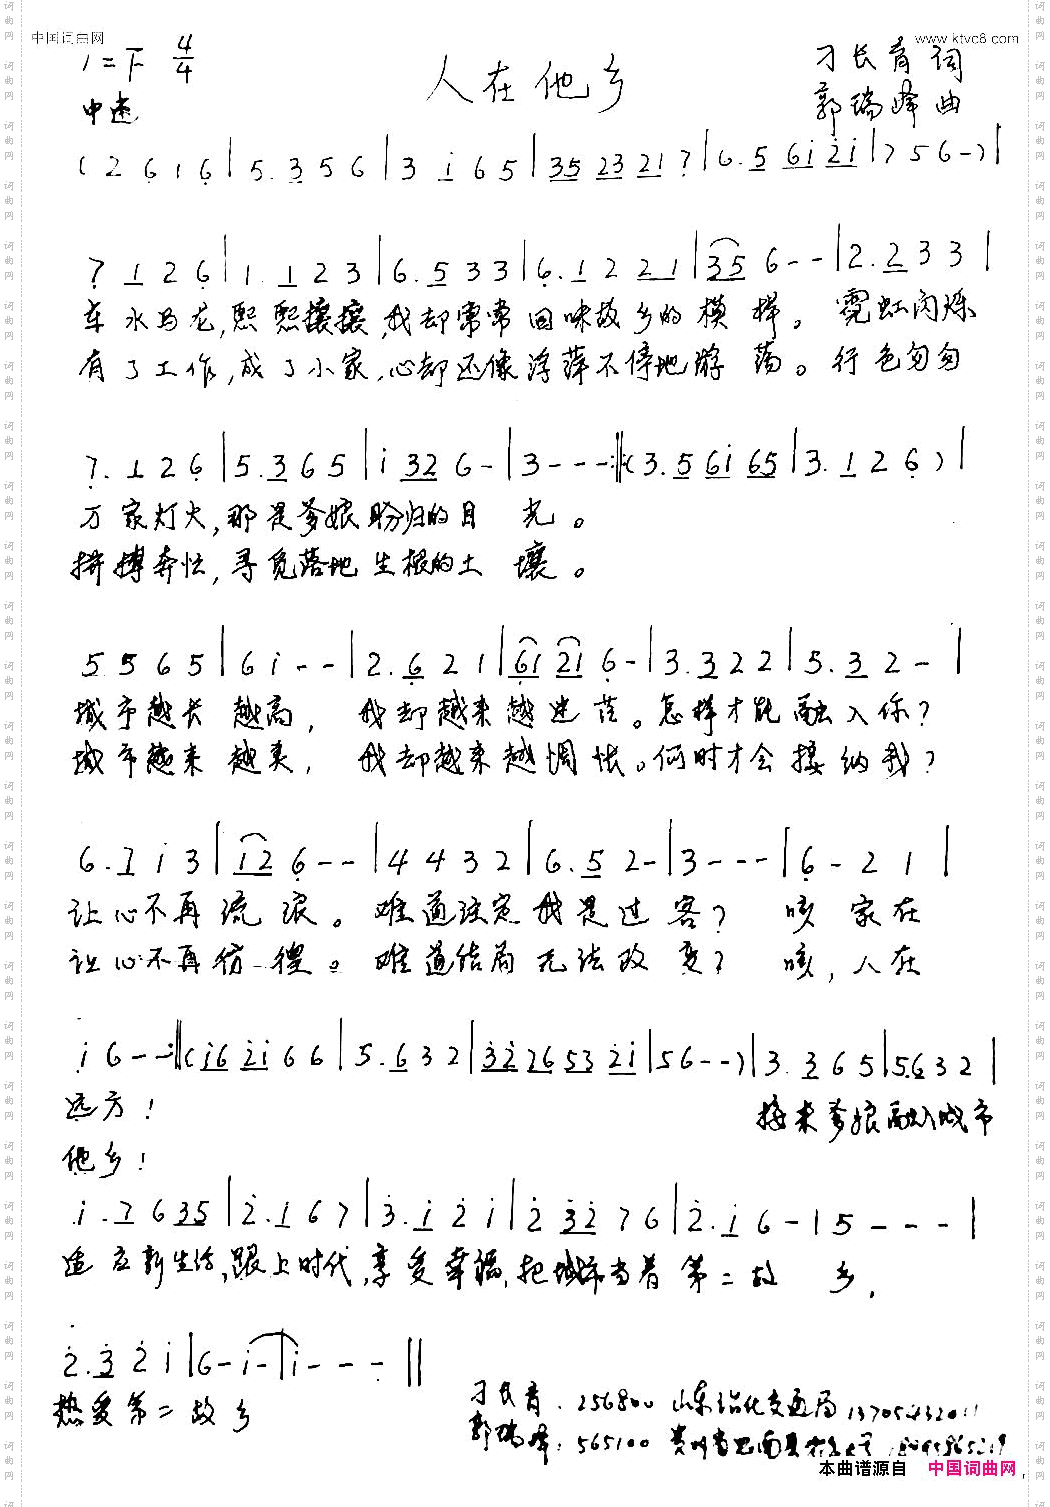 中国词曲网
www.ktvc8.com
1=F 4/4
人在他乡
刁长育 词
中速
郭瑞峰 曲
(2 6 1 6|5.3 5 6|3 i 6 5|35 23 21 7|6.5 6i 2i|7 5 6-)|
7 1 2 6|1.1 2 3|6.5 3 3|6.1 2 21|35 6--|2.2 3 3|
车水马龙,熙熙攘攘,我却常常回味故乡的模样。霓虹闪烁
有了工作,成了小家,心却还像浮萍不停地游荡。行色匆匆
7.1 2 6|5.3 6 5|i 32 6-|3---:‖(3.5 6i 65|3.1 2 6)|
万家灯火,那是爹娘盼归的目光。
拼搏奔忙,寻觅落地生根的土壤。
5 5 6 5|6 i--|2.6 2 1|61 21 6-|3.3 2 2|5.3 2-|
城市越长越高,我却越来越迷茫。怎样才能融入你?
城市越来越美,我却越来越惆怅。何时才会接纳我?
6.7 i 3|12 6--|4 4 3 2|6.5 2-|3---|6-2 1|
让心不再流浪。难道注定我是过客?咳家在
让心不再彷徨。难道结局无法改变?咳,人在
i 6--:‖(i6 2i 6 6|5.6 3 2|32 76 53 2i|5 6--)|3.3 6 5|5.6 3 2|
远方!
接来爹娘融入城市
他乡!
i.7 6 35|2.i 6 7|3.i 2 i|2 32 7 6|2.i 6-|5---|
适应新生活,跟上时代,享受幸福,把城市当着第二故乡.
2.3 2 i|6-i-|i---‖
热爱第二故乡
刁长育.256800 山东沾化交通局
郭瑞峰:565100 贵州省思南县
本曲谱源自 中国词曲网
词曲网